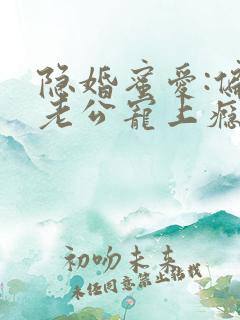 隐婚蜜爱:偏
老公宠上瘾
初吻未来
未经同意禁止转载